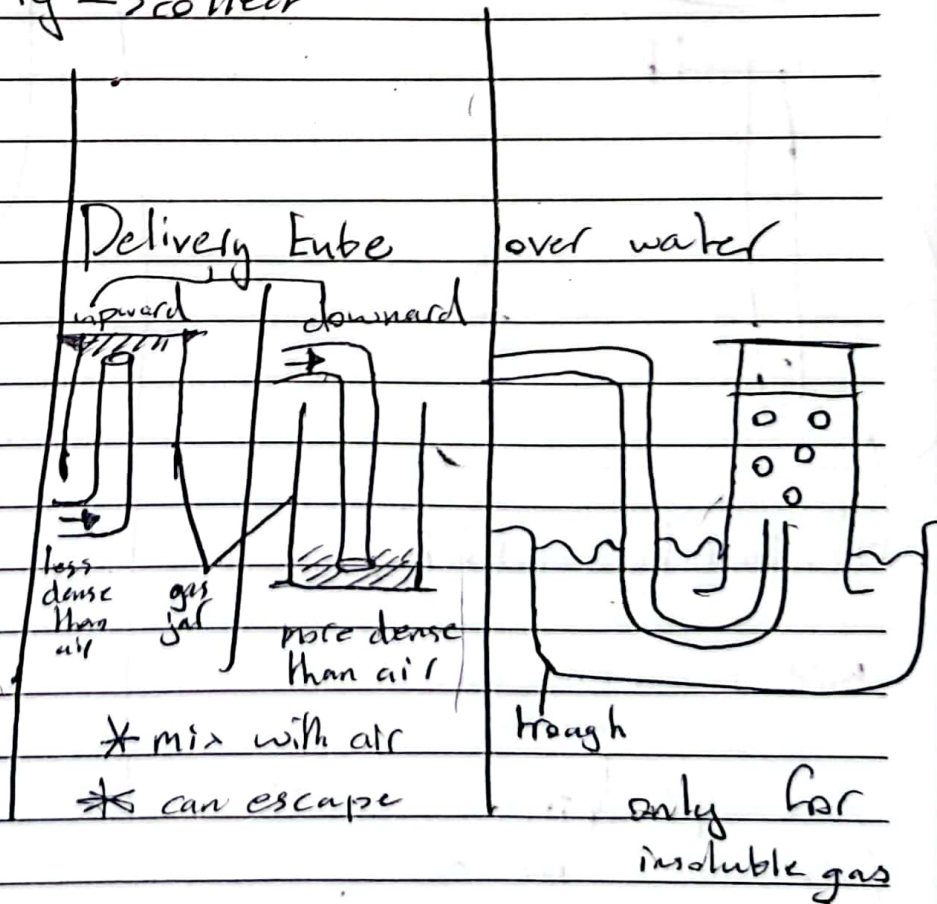 Delivery tube
over water
upward
downward
less
dense
than
air
gas
jar
more dense
than air
* mix with air
* can escape
trough
only for
insoluble gas